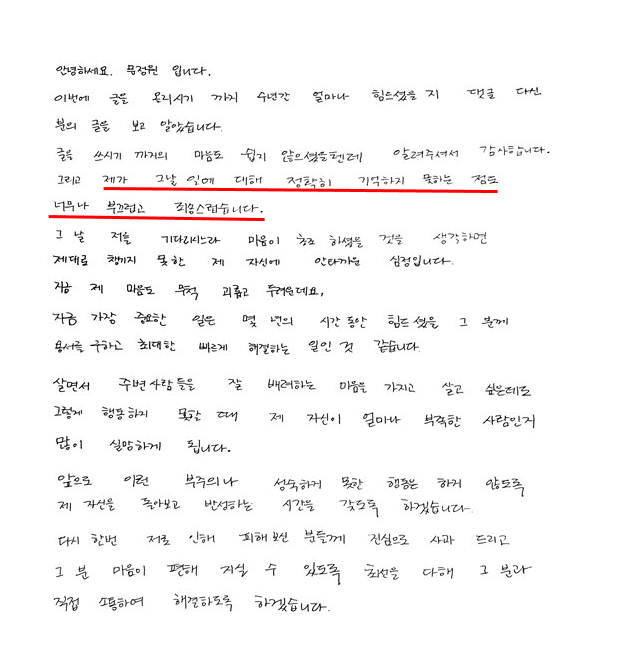 안녕하세요. 풍정원 입니다.
이번에 글을 올리시기 까지 수년간 얼마나 힘드셨을 지 댓글 다신
분의 글을 보고 알았습니다.
글을 쓰시기 까지의 마음도 쉽지 않으셨을텐데 알려주셔서 감사합니다.
그리고 제가 그날 일에 대해 정확히 기억하지 못하는 점도
너무나 부끄럽고 죄송스럽습니다.
그 날 저를 기다리시느라 마음이 초조 하셨을 것을 생각하면
제대로 챙기지 못한 제 자신에 안타까운 심정입니다.
지금 제 마음도 무척 괴롭고 두려운데요,
지금 가장 중요한 일은 몇 년의 시간 동안 힘드셨을 그 분께
용서를 구하고 최대한 빠르게 해결하는 일인 것 같습니다.
살면서 주변사람들을 잘 배려하는 마음을 가지고 살고 싶은데도
그렇게 행동하지 못할 때 제 자신이 얼마나 부족한 사람인지
많이 실망하게 됩니다.
앞으로 이런 부주의나 성숙하게 못한 행동은 하지 않도록
제 자신을 돌아보고 반성하는 시간을 갖도록 하겠습니다.
다시 한번 저로 인해 피해 보신 분들께 진심으로 사과 드리고
그 분 마음이 편해 지실 수 있도록 최선을 다해 그 분과
직접 소통하여 해결하도록 하겠습니다.